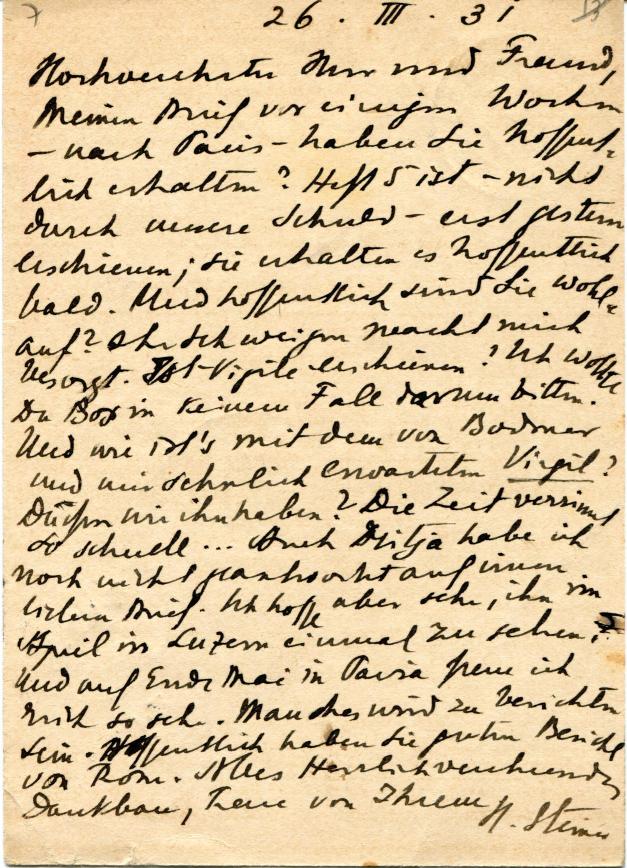 26. III. 31
Hochverehrter Herr und Freund,
Meinen Brief vor einigen Wochen
– nach Paris – haben Sie hoffent-
lich erhalten? Heft 5 ist – nicht
durch unsere Schuld – erst gestern
erschienen; Sie erhalten es hoffentlich
bald. Und hoffentlich sind Sie wohl-
auf? Ihr Schweigen macht mich
besorgt. Ist Vigile erschienen? Ich wollte
Du Bos in keinem Fall darum bitten.
Und wie ist's mit dem von Bodmer
und mir sehnlich erwarteten Virgil?
Dürfen wir ihn haben? Die Zeit verrinnt
so schnell... Auch habe ich
noch nicht geantwortet auf einen
lieben Brief. Ich hoffe aber sehr, ihn im
April in Luzern einmal zu sehen.
Und auf Ende Mai in freue ich
mich so sehr. Manches wird zu berichten
sein. Hoffentlich haben Sie guten Bericht
von Rom. Alles Herzlichverehrende,
Dankbare, Treue von Ihrem H. Steiner